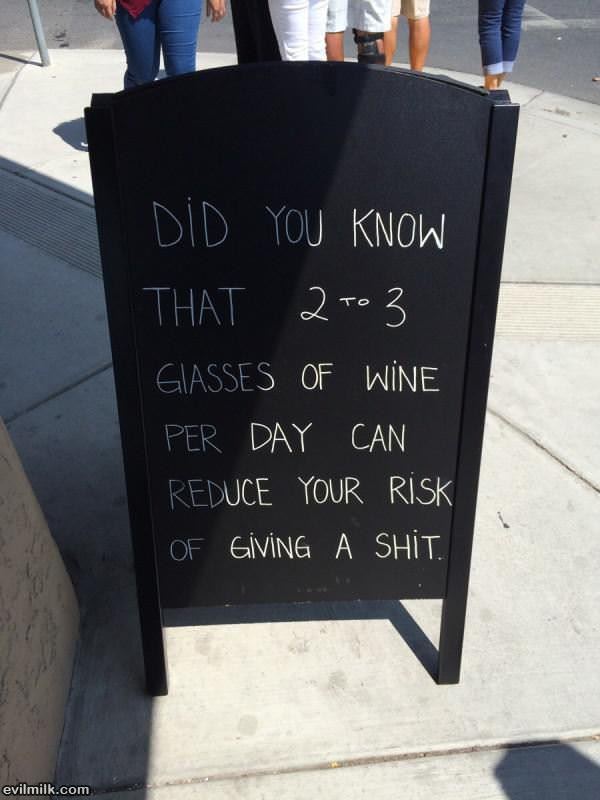 DiD YOU KNOW
THAT 2 TO 3
GlASSES OF WiNE
PER DAY CAN
REDUCE YOUR RiSK
OF GiViNG A SHiT.
evilmilk.com